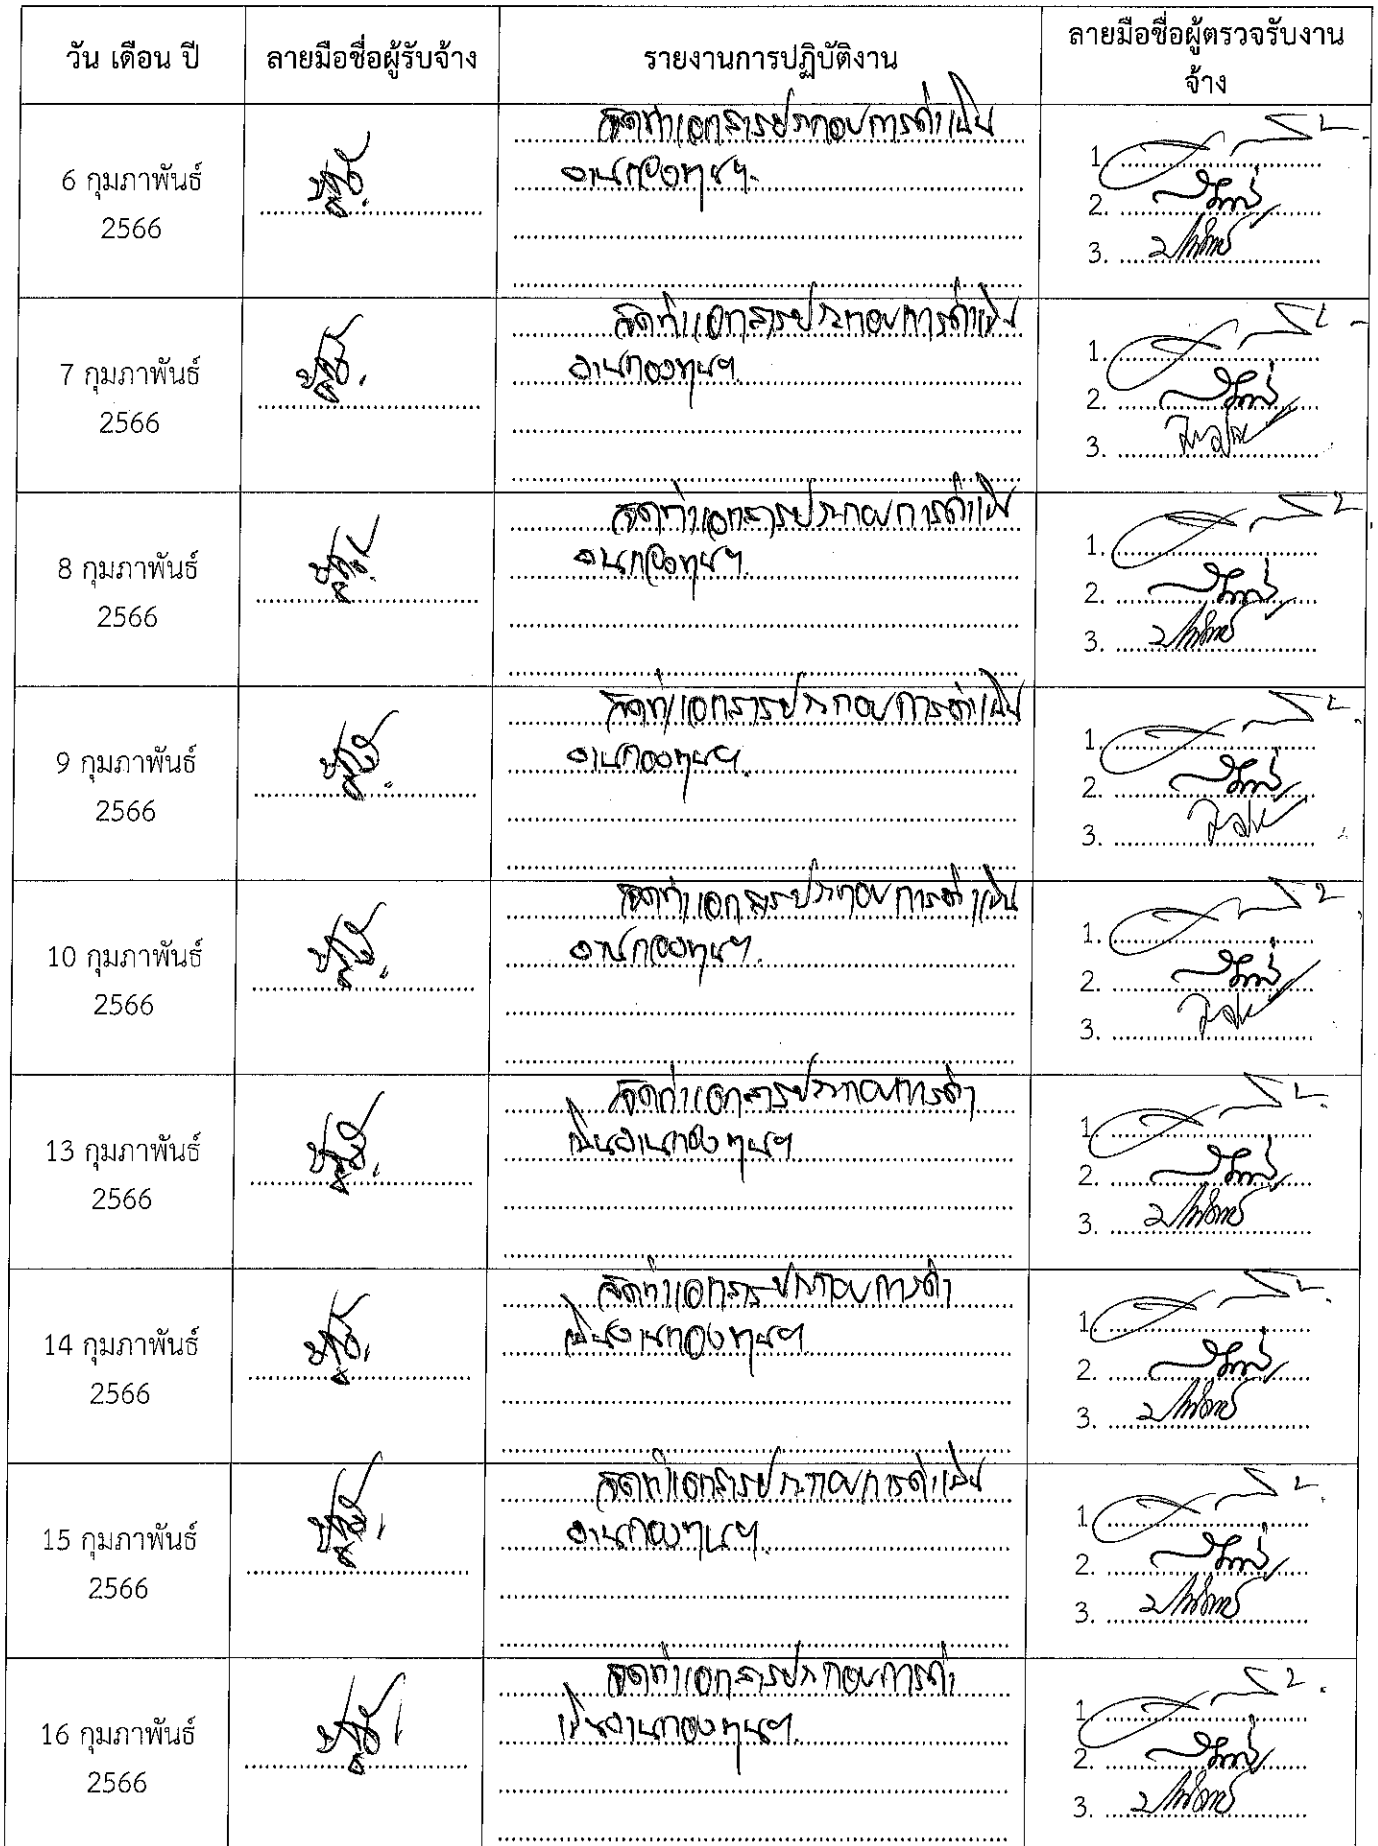 วัน เดือน ปี
ลายมือชื่อผู้รับจ้าง
รายงานการปฏิบัติงาน
ลายมือชื่อผู้ตรวจรับงาน
จ้าง
6 กุมภาพันธ์
2566
จัดทำเอกสารประกอบการดำเนิน
งานกองทุนฯ
1.
2.
3.
7 กุมภาพันธ์
2566
จัดทำเอกสารประกอบการดำเนิน
งานกองทุนฯ
1.
2.
3.
8 กุมภาพันธ์
2566
จัดทำเอกสารประกอบการดำเนิน
งานกองทุนฯ
1.
2.
3.
9 กุมภาพันธ์
2566
จัดทำเอกสารประกอบการดำเนิน
งานกองทุนฯ
1.
2.
3.
10 กุมภาพันธ์
2566
จัดทำเอกสารประกอบการดำเนิน
งานกองทุนฯ
1.
2.
3.
13 กุมภาพันธ์
2566
จัดทำเอกสารประกอบการดำ
เนินงานกองทุนฯ
1.
2.
3.
14 กุมภาพันธ์
2566
จัดทำเอกสารประกอบการดำ
เนินงานกองทุนฯ
1.
2.
3.
15 กุมภาพันธ์
2566
จัดทำเอกสารประกอบการดำเนิน
งานกองทุนฯ
1.
2.
3.
16 กุมภาพันธ์
2566
จัดทำเอกสารประกอบการดำ
เนินงานกองทุนฯ
1.
2.
3.